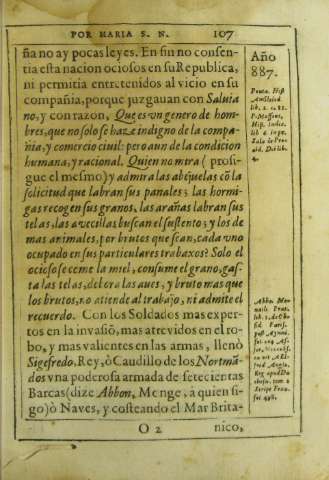 POR MARIA S. N. 107
ña no ay pocas leyes. En fin no consen-
tia esta nacion ociosos en su Republica,
ni permitia entretenidos al vicio en su
compañia, porque juzgauan con Saluia
no, y con razon, Que es vn genero de hom-
bres, que no solo se haze indigno de la compa-
ñia, y comercio ciuil: pero aun de la condicion
humana, y racional. Quien no mira ( prosi-
gue el mesmo) y admira las abejuelas cõ la
solicitud que labran sus panales; las hormi-
gas recogen sus granos, las arañas labran sus
telas, las avecillas buscan el sustento; y los de
mas animales, por brutos que sean, cada vno
ocupado en sus particulares trabaxos? Solo el
ocioso se come la miel, consume el grano, gas-
ta las telas, debora las aues, y bruto mas que
los brutos, no atiende al trabajo, ni admite el
recuerdo. Con los Soldados mas exper-
tos en la invasiõ, mas atrevidos en el ro-
bo, y mas valientes en las armas, llenò
Sigefredo, Rey, ò Caudillo de los Nortmã-
dos vna poderosa armada de setecientas
Barcas (dize Abbon, Menge, à quien si-
go) ò Naves, y costeando el Mar Brita-
O 2 nico,
Año
887.
lib. 2. c. 25.
P. Maffeus,
Hist. Indic.
lib. 6. in pr.
Salu. de Pro-
uid. Dei lib.
4.
Abbo. Mo-